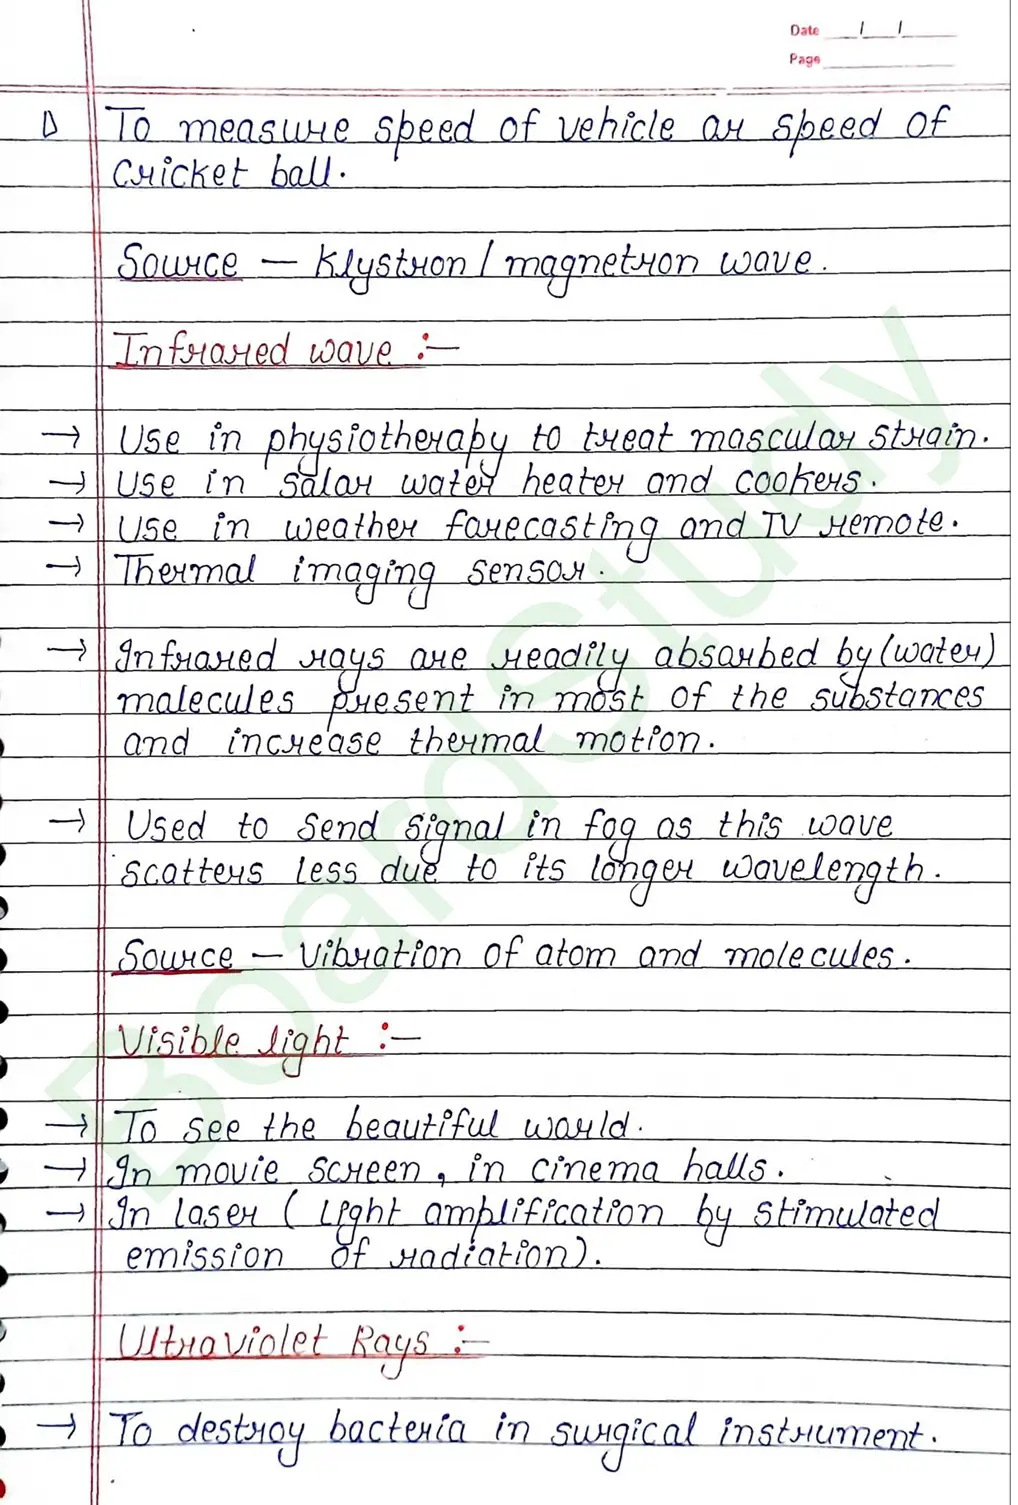 Date __/__/____
Page ________
▷ To measure speed of vehicle or speed of
cricket ball.
Source — Klystron / magnetron wave.
Infrared wave :—
→ Use in physiotherapy to treat mascular strain.
→ Use in solar water heater and cookers.
→ Use in weather forecasting and TV remote.
→ Thermal imaging sensor.
→ Infrared rays are readily absorbed by (water)
molecules present in most of the substances
and increase thermal motion.
→ Used to send signal in fog as this wave
scatters less due to its longer wavelength.
Source — Vibration of atom and molecules.
Visible light :—
→ To see the beautiful world.
→ In movie screen, in cinema halls.
→ In laser ( Light amplification by stimulated
emission of radiation).
Ultraviolet Rays :—
→ To destroy bacteria in surgical instrument.
BoardStudy